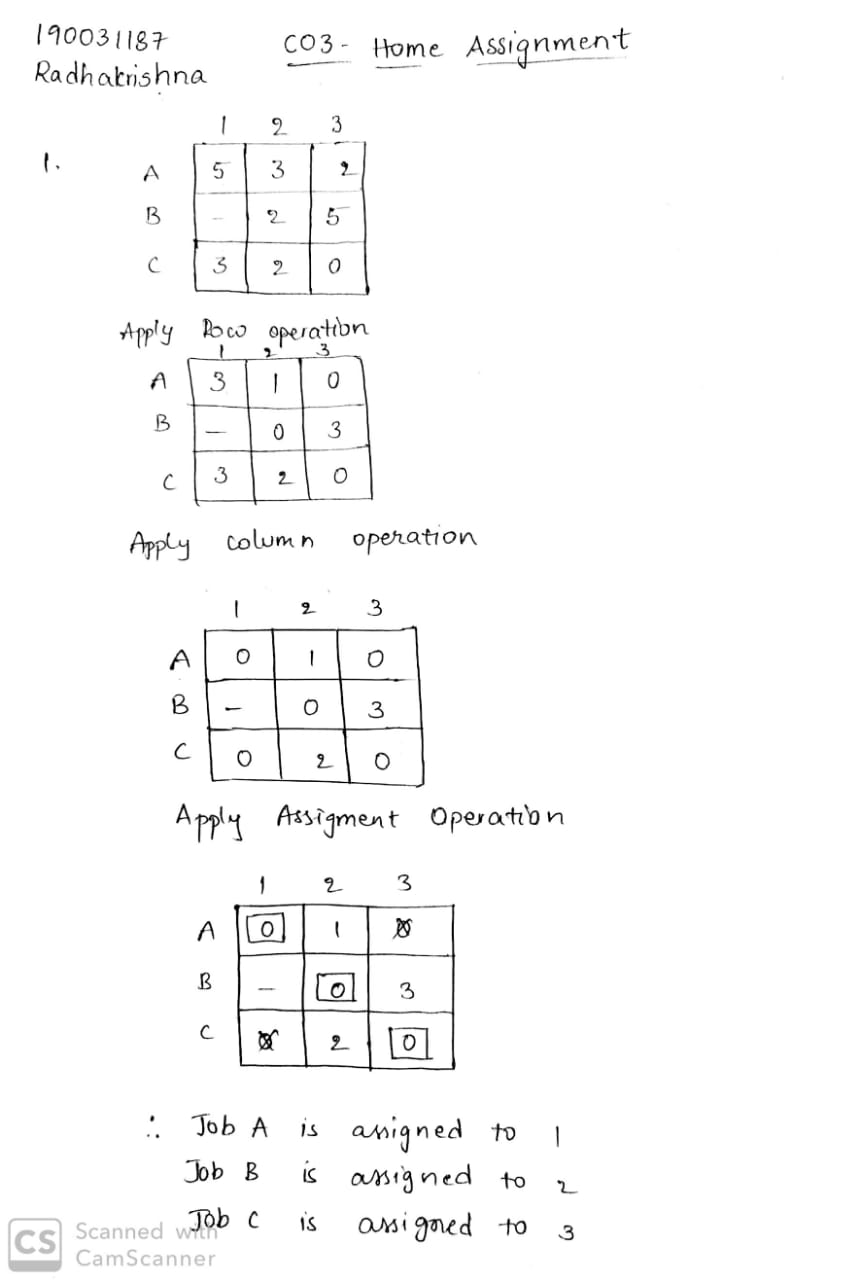 190031187
CO3- Home Assignment
Radhakrishna
1 2 3
1.
A 5 3 2
B - 2 5
C 3 2 0
Apply Row operation
1 2 3
A 3 1 0
B - 0 3
C 3 2 0
Apply column operation
1 2 3
A 0 1 0
B - 0 3
C 0 2 0
Apply Assigment Operation
1 2 3
A 0 1 0
B - 0 3
C 0 2 0
∴ Job A is assigned to 1
Job B is assigned to 2
Job C is assigned to 3
CS Scanned with
CamScanner